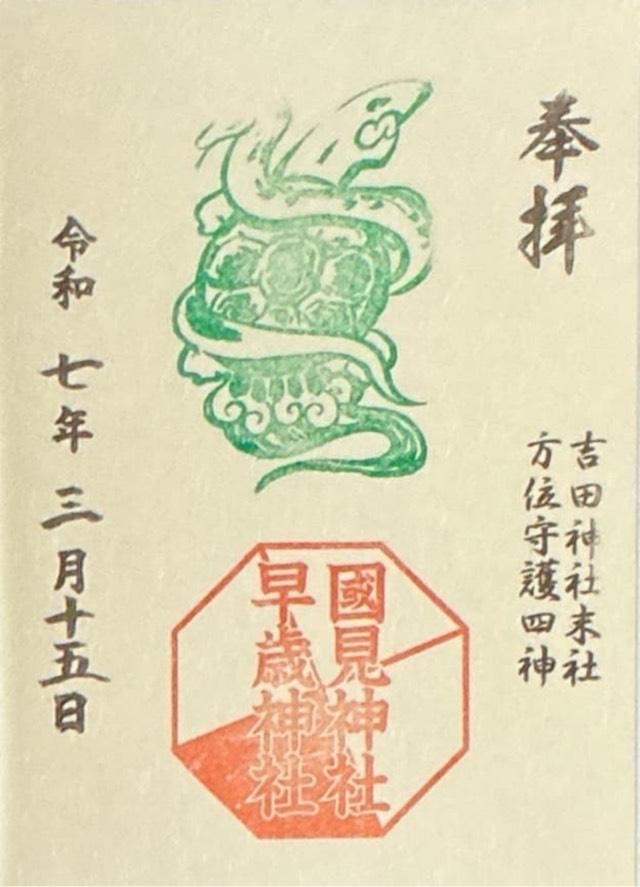 奉拝
吉田神社末社
方位守護四神
國見神社
早歳神社
令和七年三月十五日